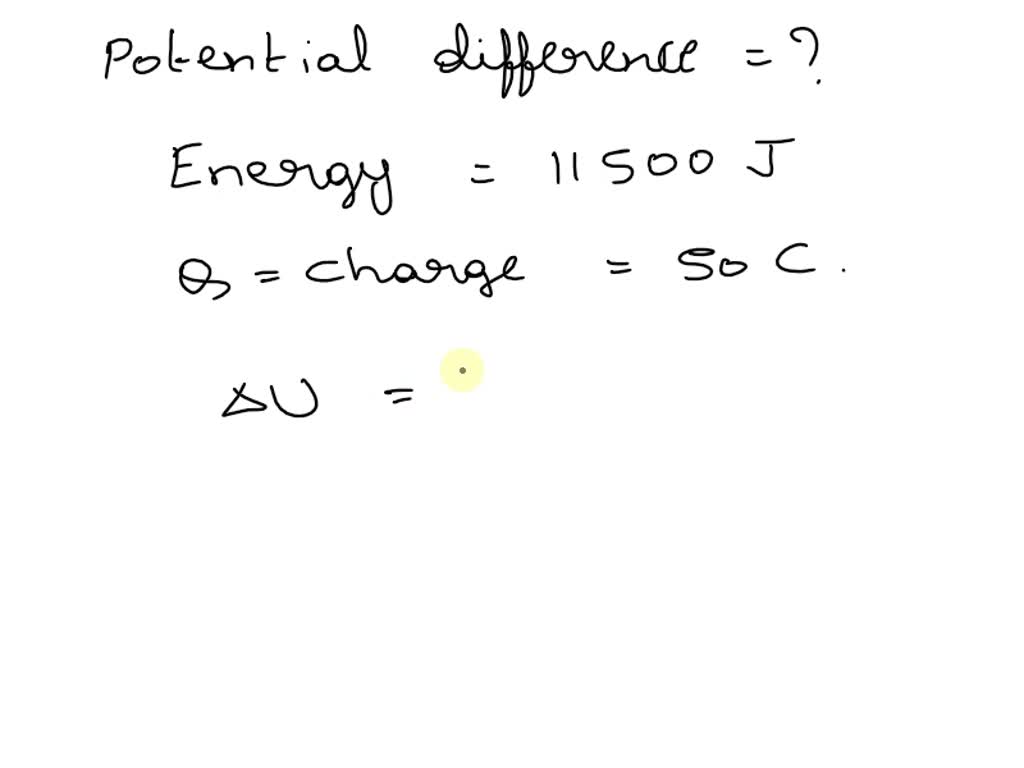 Potential difference = ?
Energy = 11500 J
Q = charge = 50 C.
ΔU =